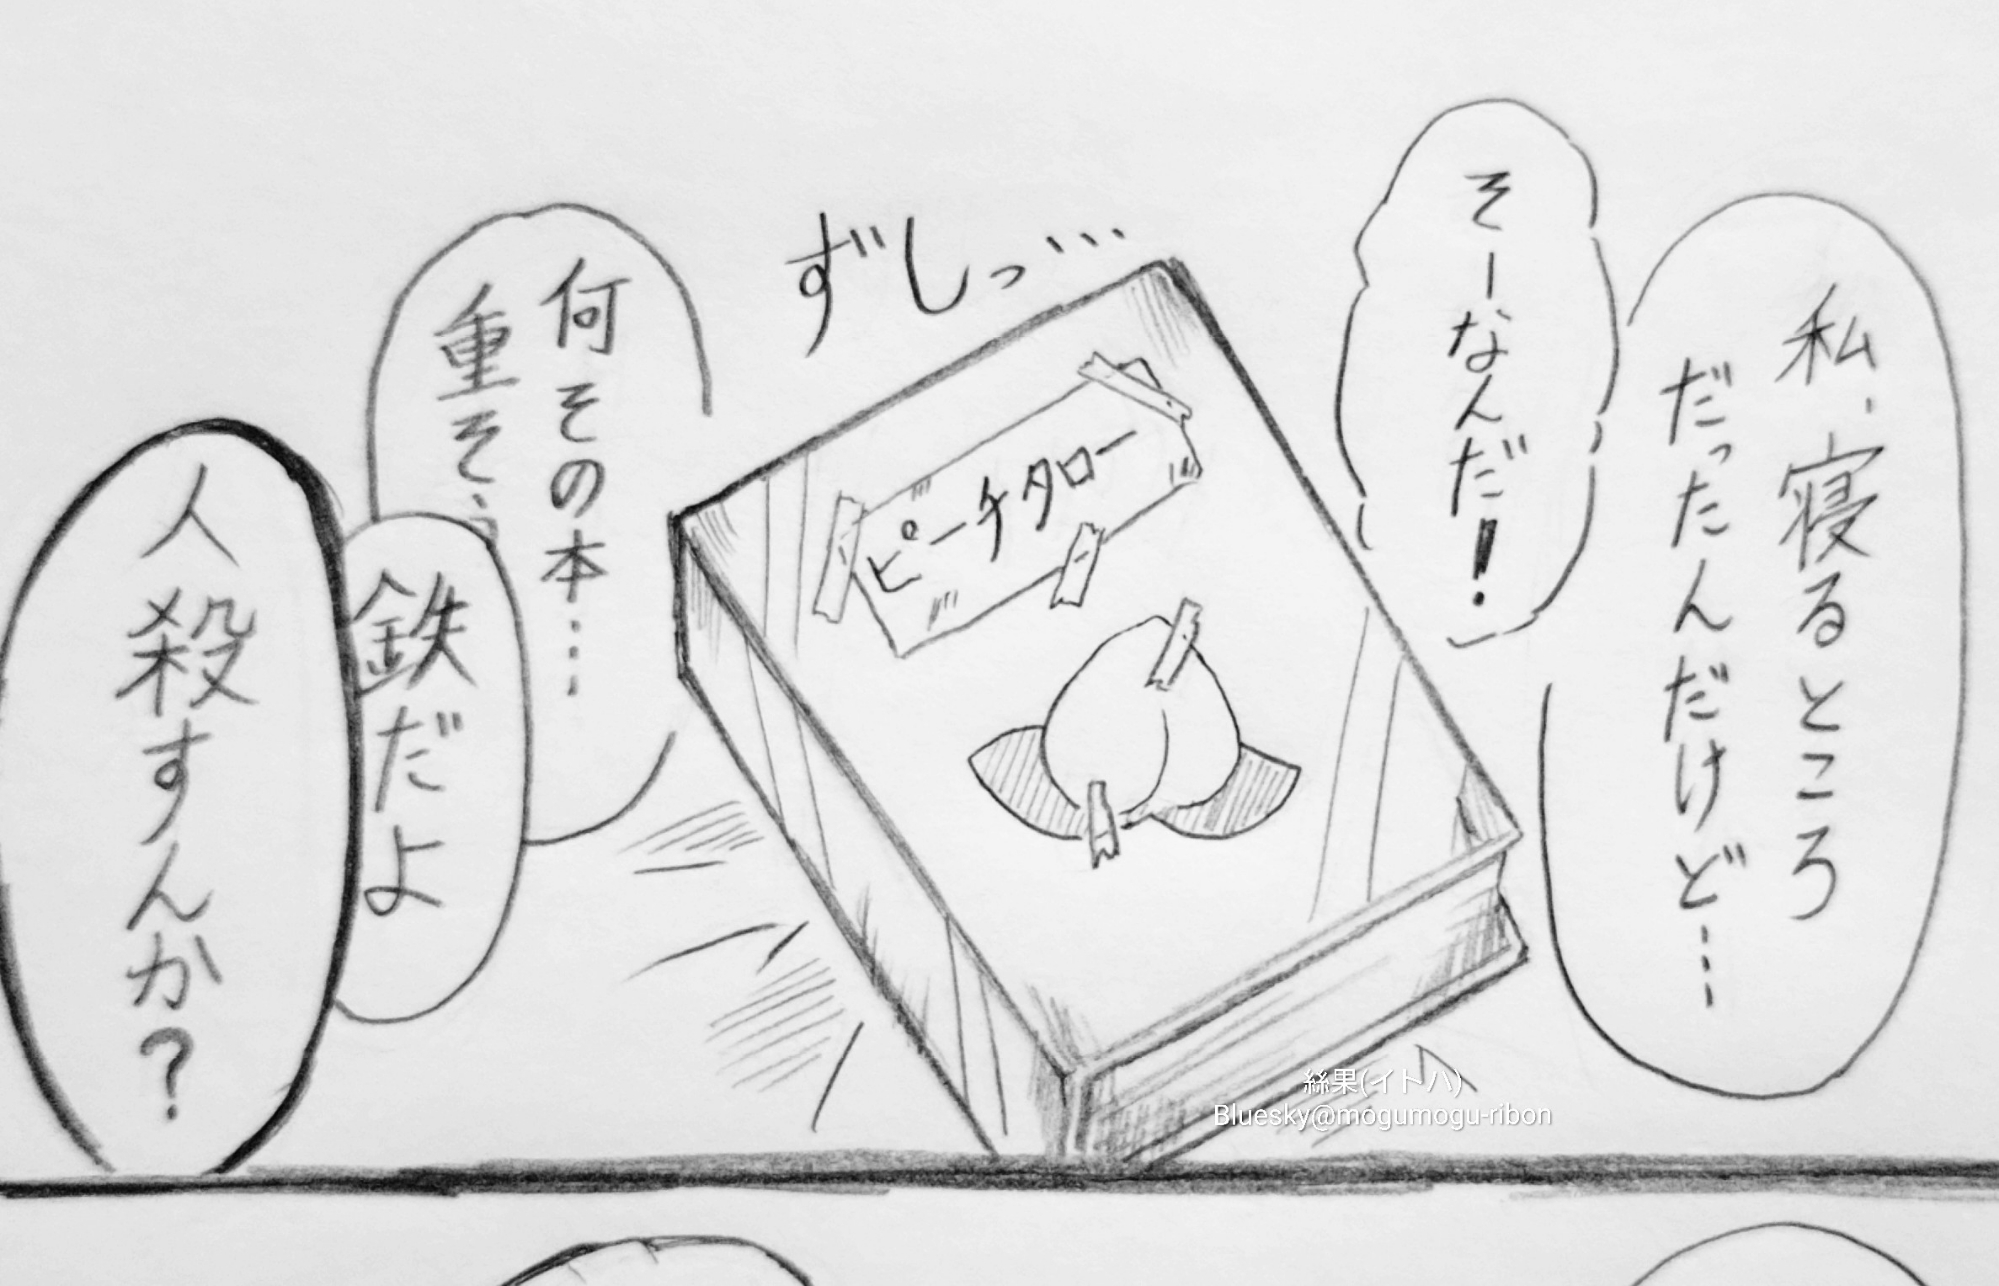 私、寝るところ
だったんだけど…
そーなんだ!
ずしっ…
ピーチタロー
何その本…
重そ、
鉄だよ
人殺すんか?
絲果(イトハ)
Bluesky@mogumogu-ribon